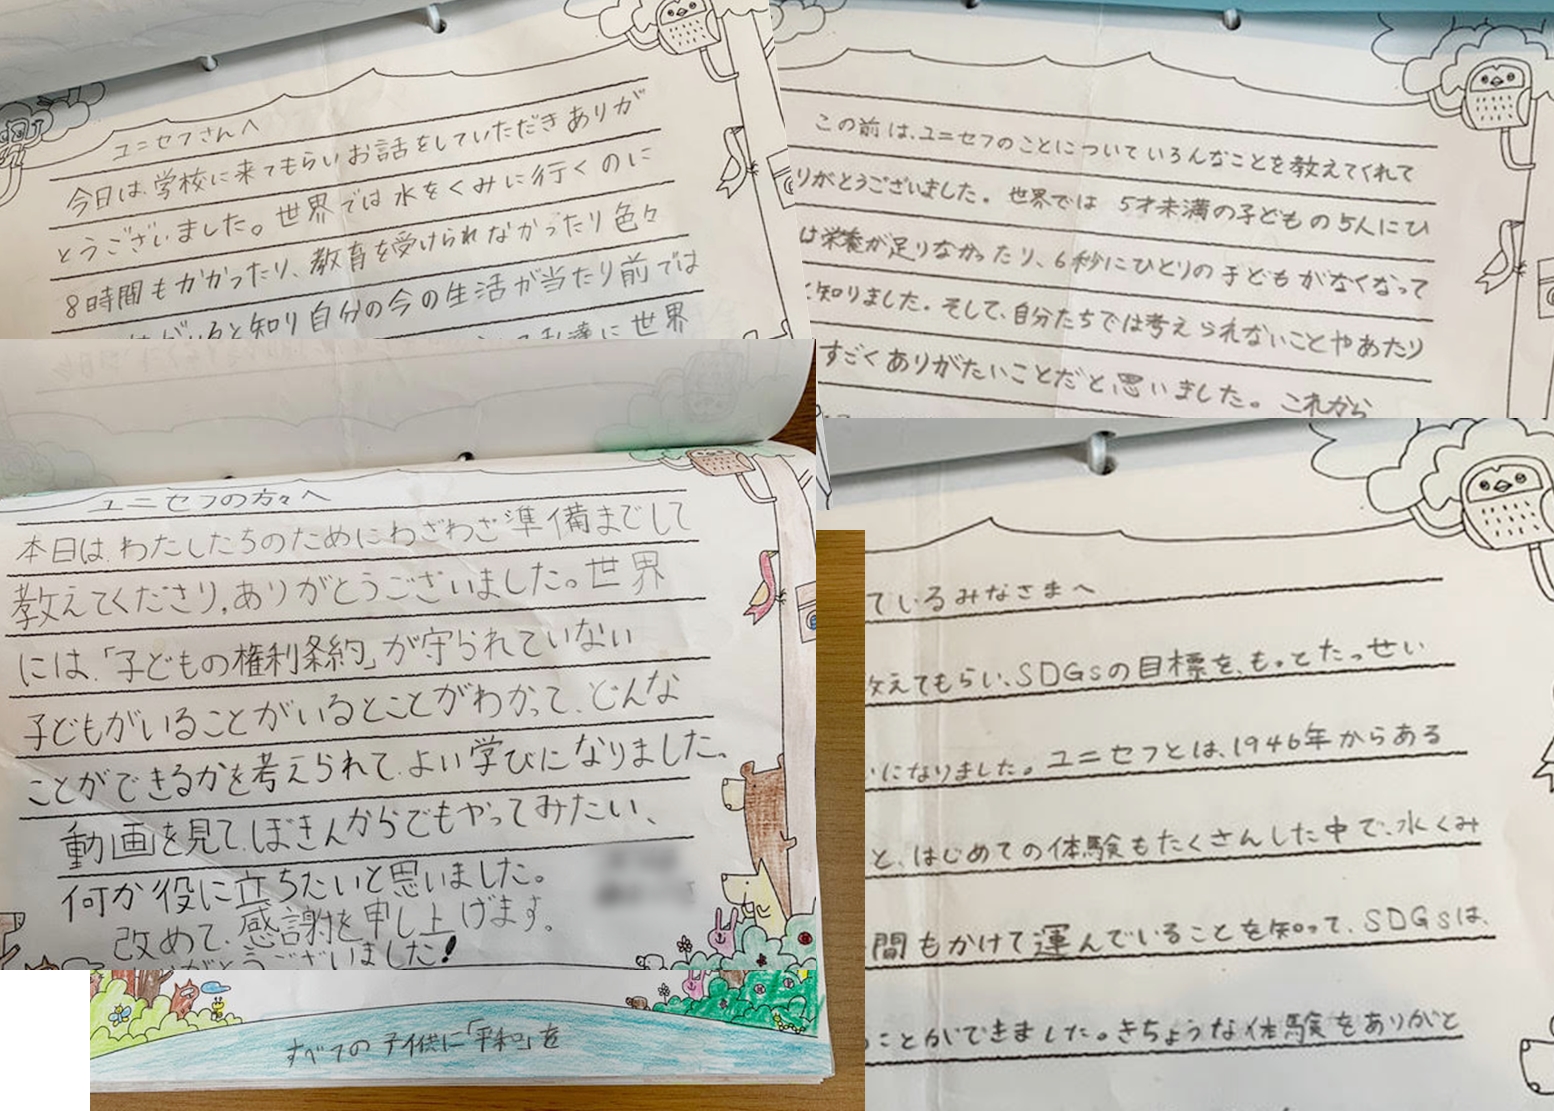 ユニセフさんへ
今日は、学校に来てもらいお話をしていただきありが
とうございました。世界では水をくみに行くのに
8時間もかかったり、教育を受けられなかったり色々
がいると知り自分の今の生活が当たり前では
私達に世界
この前は、ユニセフのことについていろんなことを教えてくれて
りがとうございました。世界では5才未満の子どもの5人にひ
は栄養が足りなかったり、6秒にひとりの子どもがなくなって
と知りました。そして、自分たちでは考えられないことやあたり
すごくありがたいことだと思いました。これから
ユニセフの方々へ
本日は、わたしたちのためにわざわざ準備までして
教えてくださり、ありがとうございました。世界
には、「子どもの権利条約」が守られていない
子どもがいることがいるとことがわかって、どんな
ことができるかを考えられて、よい学びになりました。
動画を見て、ぼきんからでもやってみたい、
何か役に立ちたいと思いました。
改めて、感謝を申し上げます。
がとうございました!
すべての子供に「平和」を
ているみなさまへ
教えてもらい、SDGsの目標を、もっとたっせい
になりました。ユニセフとは、1946年からある
と、はじめての体験もたくさんした中で、水くみ
間もかけて運んでいることを知って、SDGsは、
ことができました。きちょうな体験をありがと